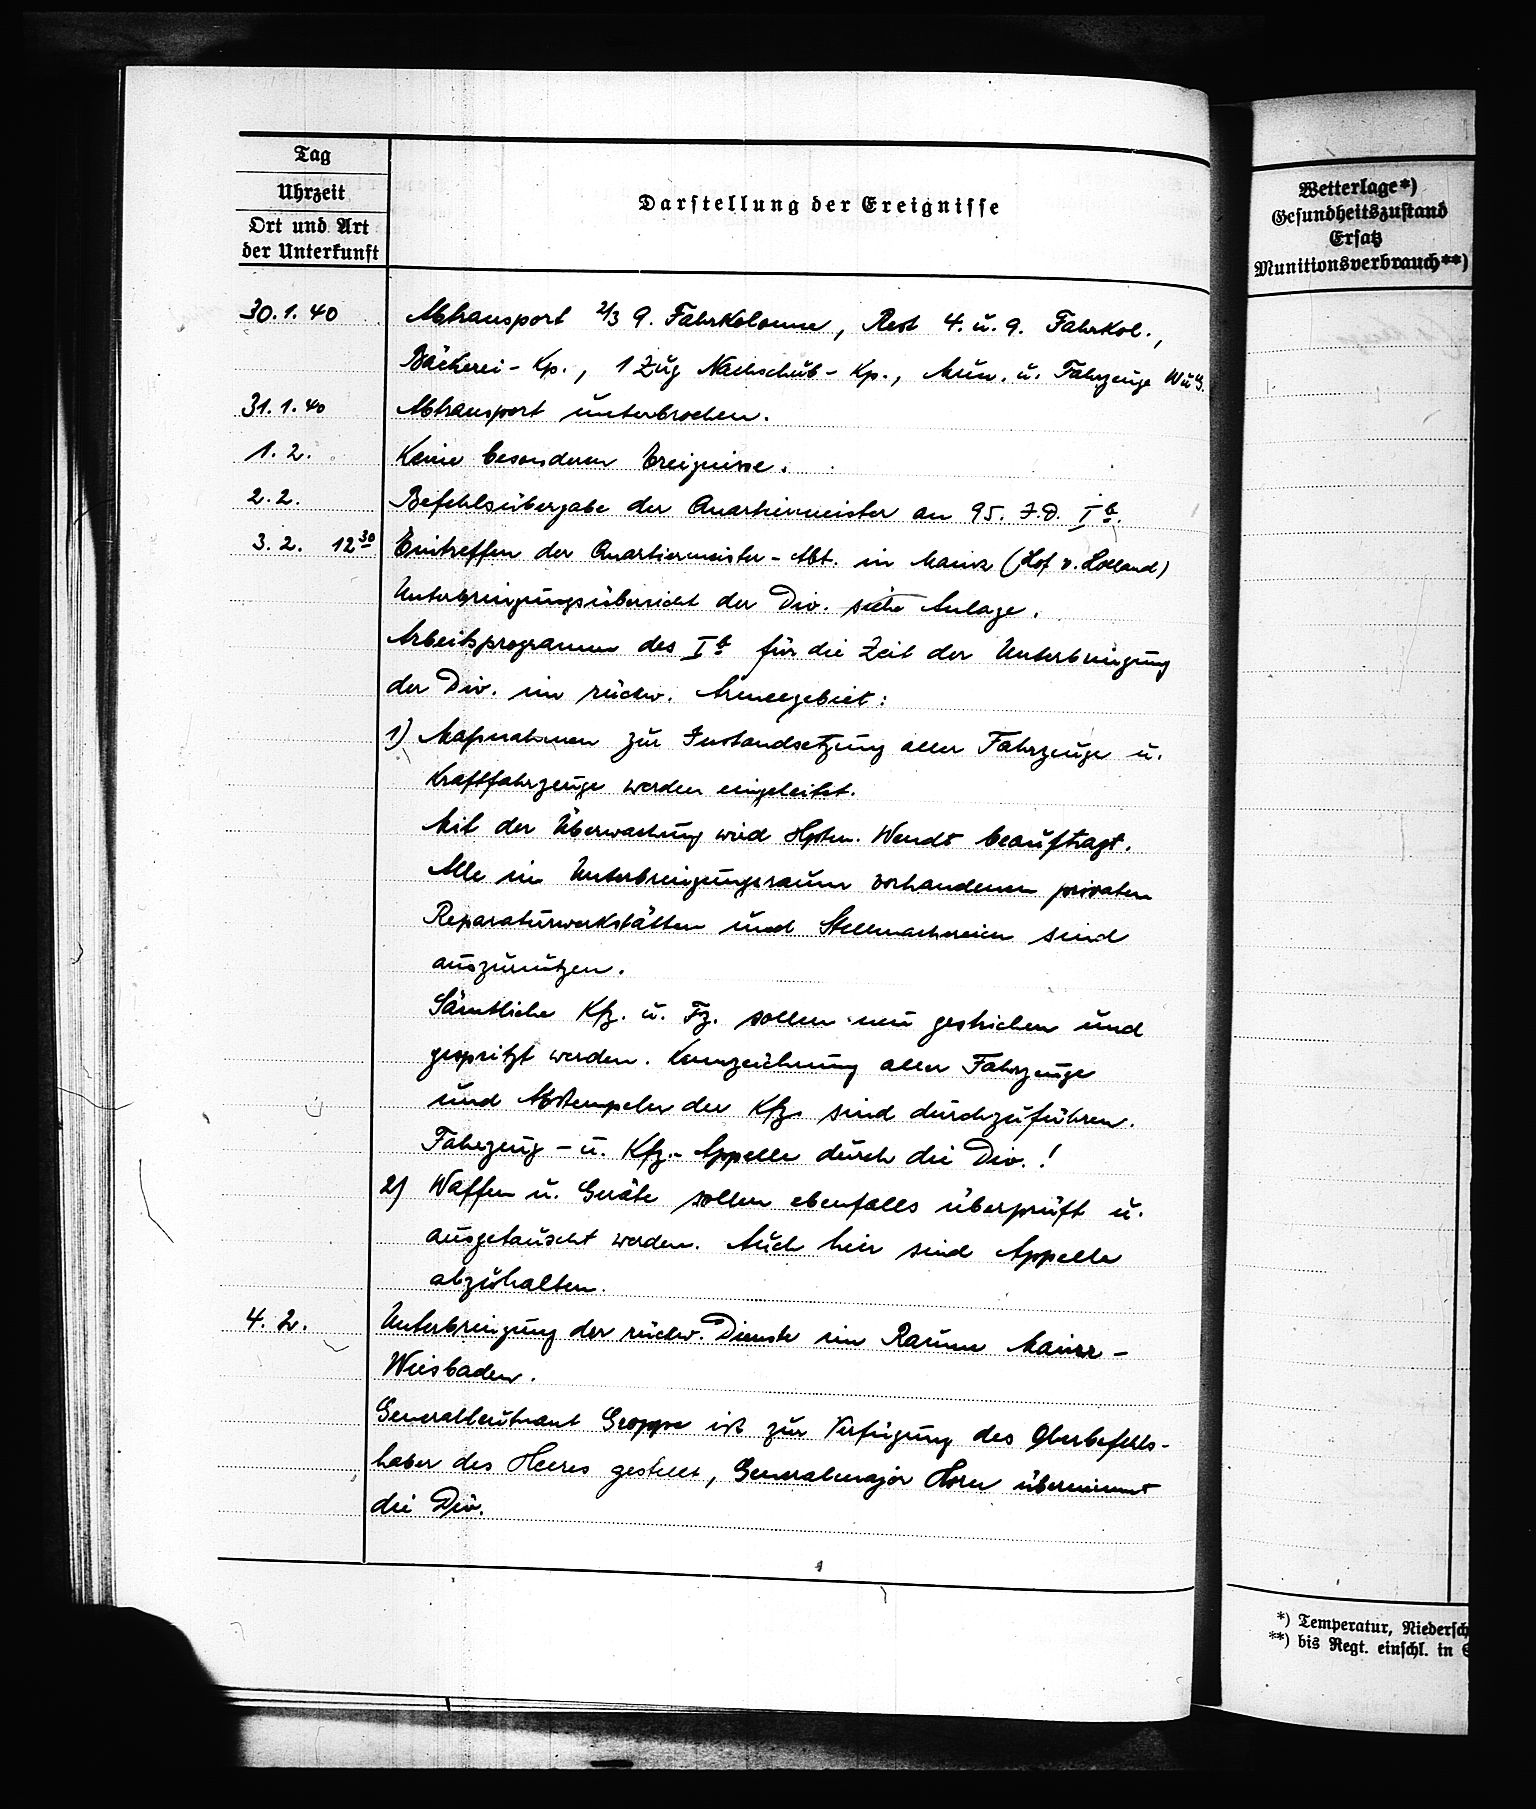 Tag
Uhrzeit
Ort und Art
der Unterkunft
Darstellung der Ereignisse
30.1.40 Abtransport 2/3 9. Fahrkolonne, Rest 4. u. 9. Fahrkol.,
Bäckerei-Kp., 1 Zug Nachschub-Kp., Mun. u. Fahrzeuge WuG.
31.1.40 Abtransport unterbrochen.
1.2. Keine besonderen Ereignisse.
2.2. Befehlsübergabe der Quartiermeister an 95. I.D. Ib.
3.2. 12 30 Eintreffen der Quartiermeister-Abt. in Mainz (Hof v. Holland)
Unterbringungsübersicht der Div. siehe Anlage.
Arbeitsprogramm des Ib für die Zeit der Unterbringung
der Div. im rückw. Armeegebiet:
1) Maßnahmen zur Instandsetzung aller Fahrzeuge u.
Kraftfahrzeuge werden eingeleitet.
Mit der Überwachung wird Hptm. Wendt beauftragt.
Alle im Unterbringungsraum vorhandenen privaten
Reparaturwerkstätten und Stellmachereien sind
auszunutzen.
Sämtliche Kfz. u. Fz. sollen neu gestrichen und
gespritzt werden. Kennzeichnung aller Fahrzeuge
und Abstempeln der Kfz sind durchzuführen.
Fahrzeug- u. Kfz.-Appelle durch die Div.!
2) Waffen u. Geräte sollen ebenfalls überprüft u.
ausgetauscht werden. Auch hier sind Appelle
abzuhalten.
4.2. Unterbringung der rückw. Dienste im Raume Mainz-
Wiesbaden.
Generalleutnant Groppe ist zur Verfügung des Oberbefehls-
haber des Heeres gestellt, Generalmajor Horn übernimmt
die Div.
Wetterlage*)
Gesundheitszustand
Ersatz
Munitionsverbrauch**)
*) Temperatur, Niedersch
**) bis Regt. einschl. in